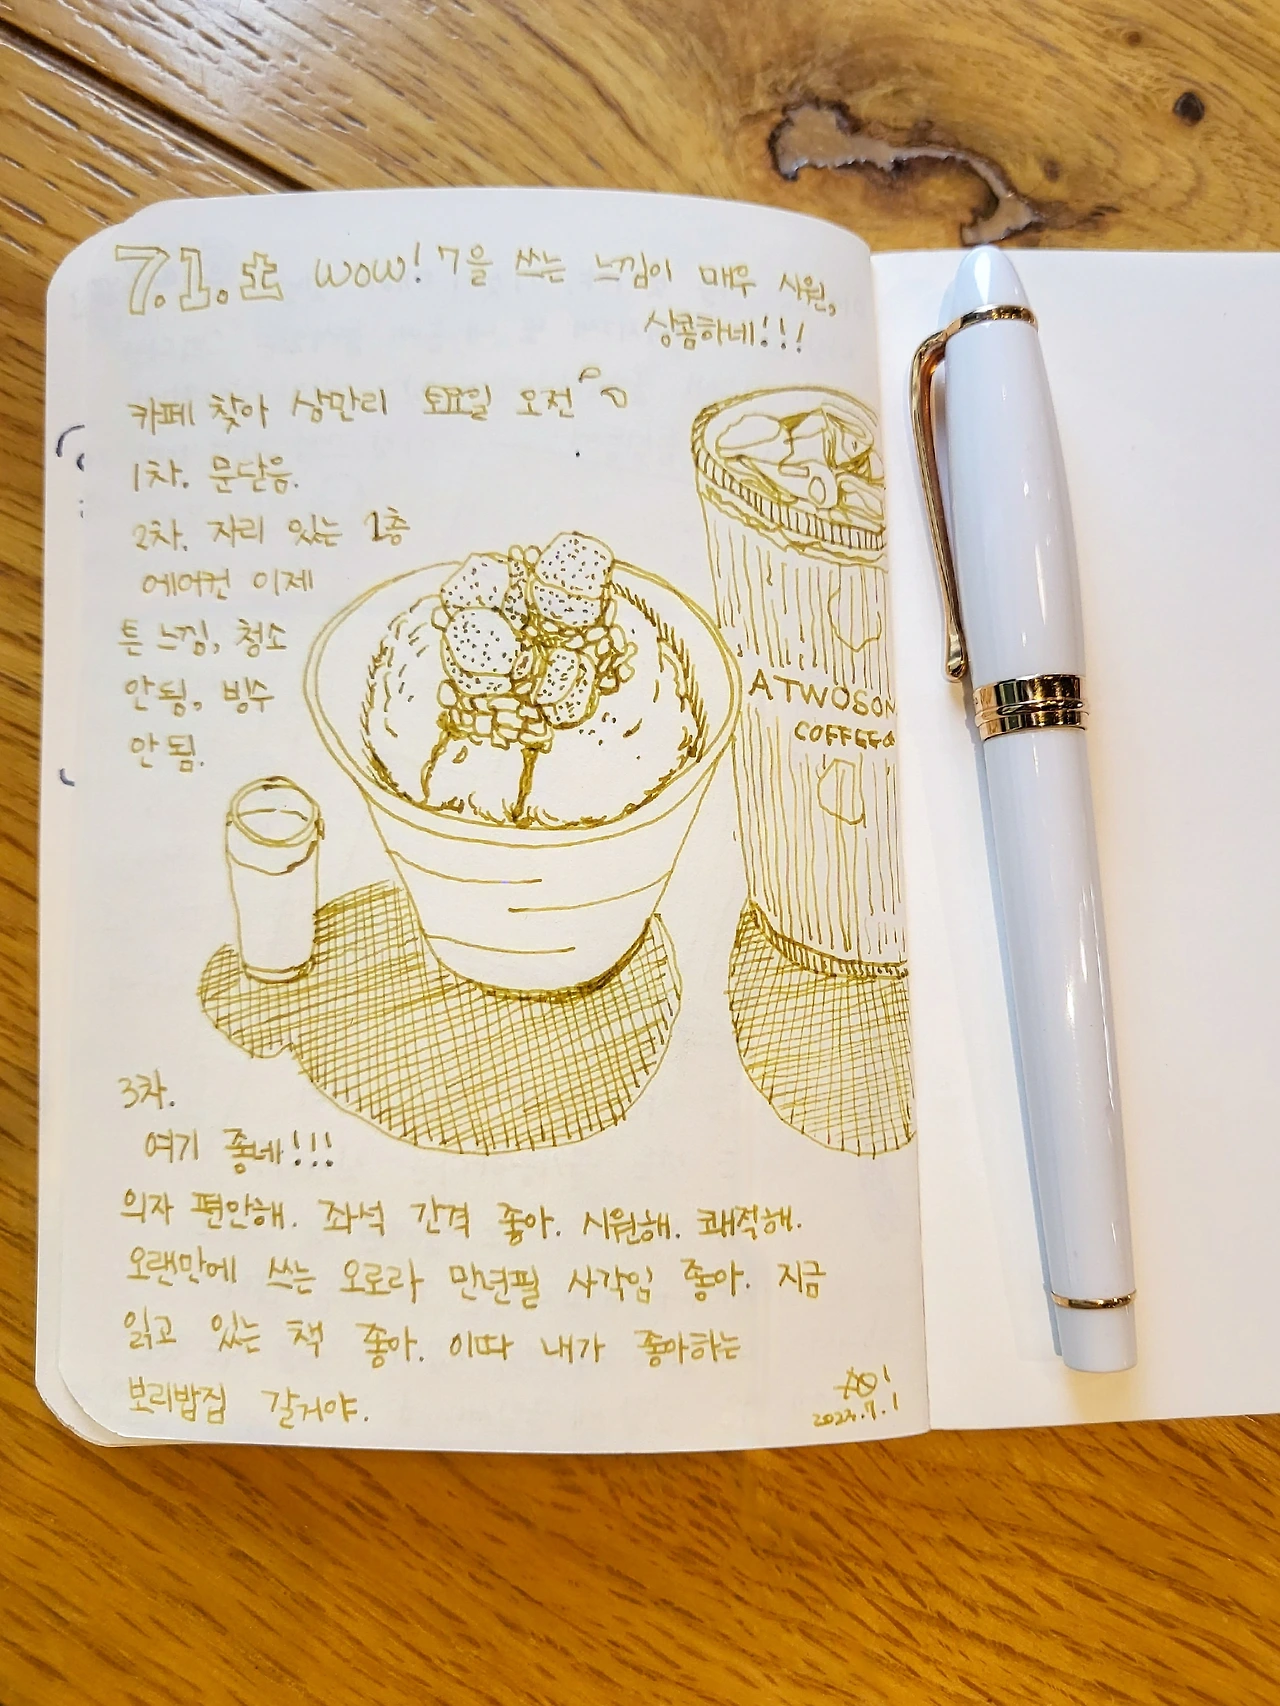 7.1.토 WOW! 7을 쓰는 느낌이 매우 시원,
상콤하네!!!
카페 찾아 삼만리 토요일 오전
1차. 문닫음.
2차. 자리 있는 1층
에어컨 이제
튼 느낌, 청소
안됨, 빙수
안됨.
ATWOSOM
COFFEE
3차.
여기 좋네!!!
의자 편안해. 좌석 간격 좋아. 시원해. 쾌적해.
오랜만에 쓰는 오로라 만년필 사각임 좋아. 지금
읽고 있는 책 좋아. 이따 내가 좋아하는
보리밥집 갈거야.
2023.7.1